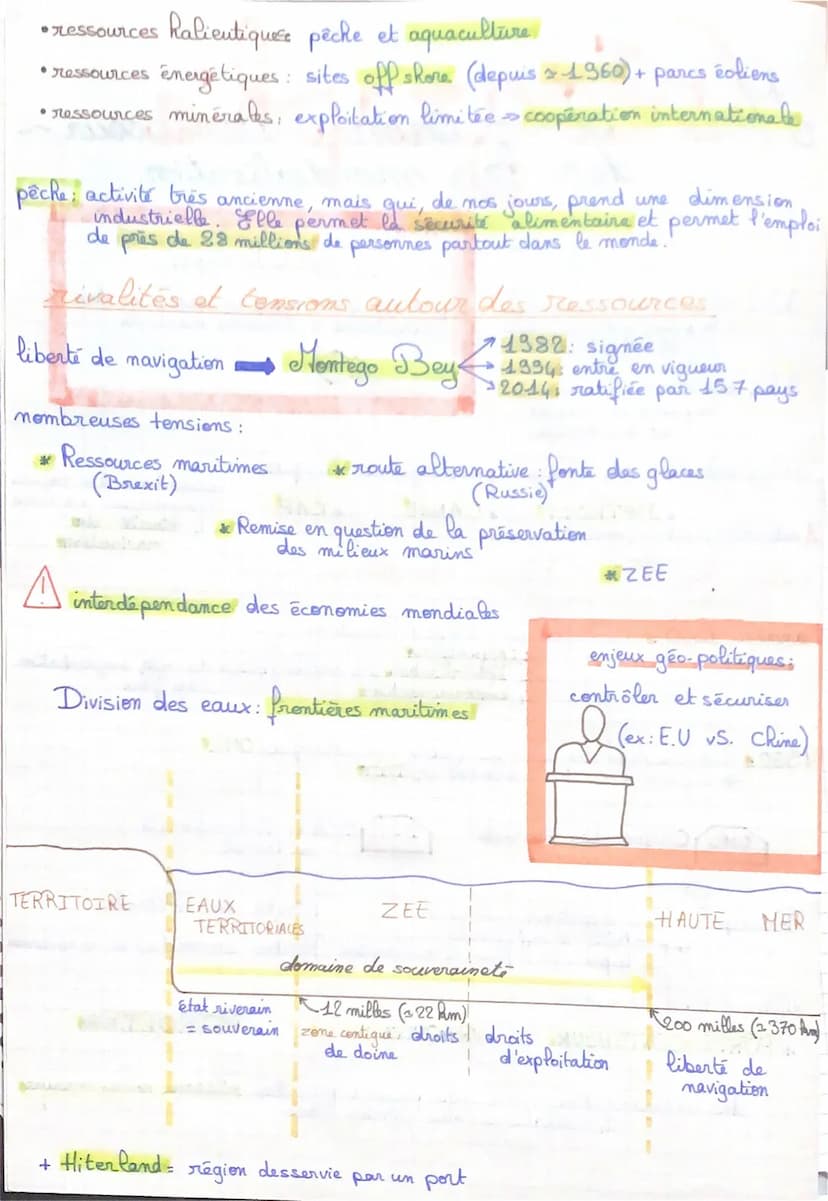 • ressources halieutiques pêche et aquaculture
• ressources énergétiques : sites offshore (depuis ≃ 1960) + parcs éoliens
• ressources minérales : exploitation limitée => coopération internationale
pêche : activité très ancienne, mais qui, de nos jours, prend une dimension
industrielle. Elle permet la sécurité alimentaire et permet l'emploi
de près de 28 millions de personnes partout dans le monde.
rivalités et tensions autour des ressources
liberté de navigation ➡ Montego Bey
1982 : signée
1994 : entré en vigueur
2014 : ratifiée par 157 pays
nombreuses tensions :
* Ressources maritimes
(Brexit)
* route alternative : fonte des glaces
(Russie)
* Remise en question de la préservation
des milieux marins
* ZEE
⚠ interdépendance des économies mondiales
enjeux géo-politiques :
contrôler et sécuriser
(ex : E.U vs. Chine)
Division des eaux : frontières maritimes
TERRITOIRE
EAUX
TERRITORIALES
ZEE
HAUTE MER
domaine de souveraineté
État riverain
= souverain
12 milles (≃ 22 km)
zone contiguë : droits
de doine
droits
d'exploitation
200 milles (≃ 370 km)
liberté de
navigation
+ Hiterland = région desservie par un port